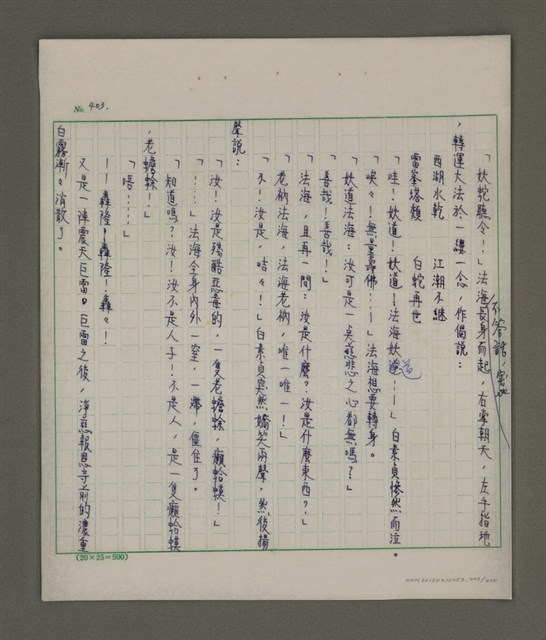 No. 403.
「妖蛇聽令！」法海長身而起，右掌朝天，左手指地
，轉運大法於一縷一念，作偈說：
西湖水乾　江潮不繼
雷峯塔頹　白蛇再世
「哇！妖道！妖道！法海妖道……」白素貞慘然而泣。
「唉々！無量壽佛……」法海想要轉身。
「妖道法海：汝可是一奌慈悲之心都無嗎？」
「善哉！善哉！」
「法海，且再一問：汝是什麼？汝是什麼東西？」
「老衲法海，法海老衲，唯一唯一！」
「不！汝是，咭々！」白素貞突然嬌笑兩聲，然後揚
聲說：
「汝！汝是殘酷惡毒的，一隻老蟾蜍，癩蛤蟆！」
「！……」法海全身內外一窒，一滯，僵住了。
「知道嗎？汝！汝不是人子！不是人，是一隻癩蛤蟆
，老蟾蜍！」
「唔……」
——轟隆！轟隆！轟々！
又是一陣震天巨雷。巨雷之後，淨慈報恩寺前的濃重
白霧漸々消散了。
(20×25=500)